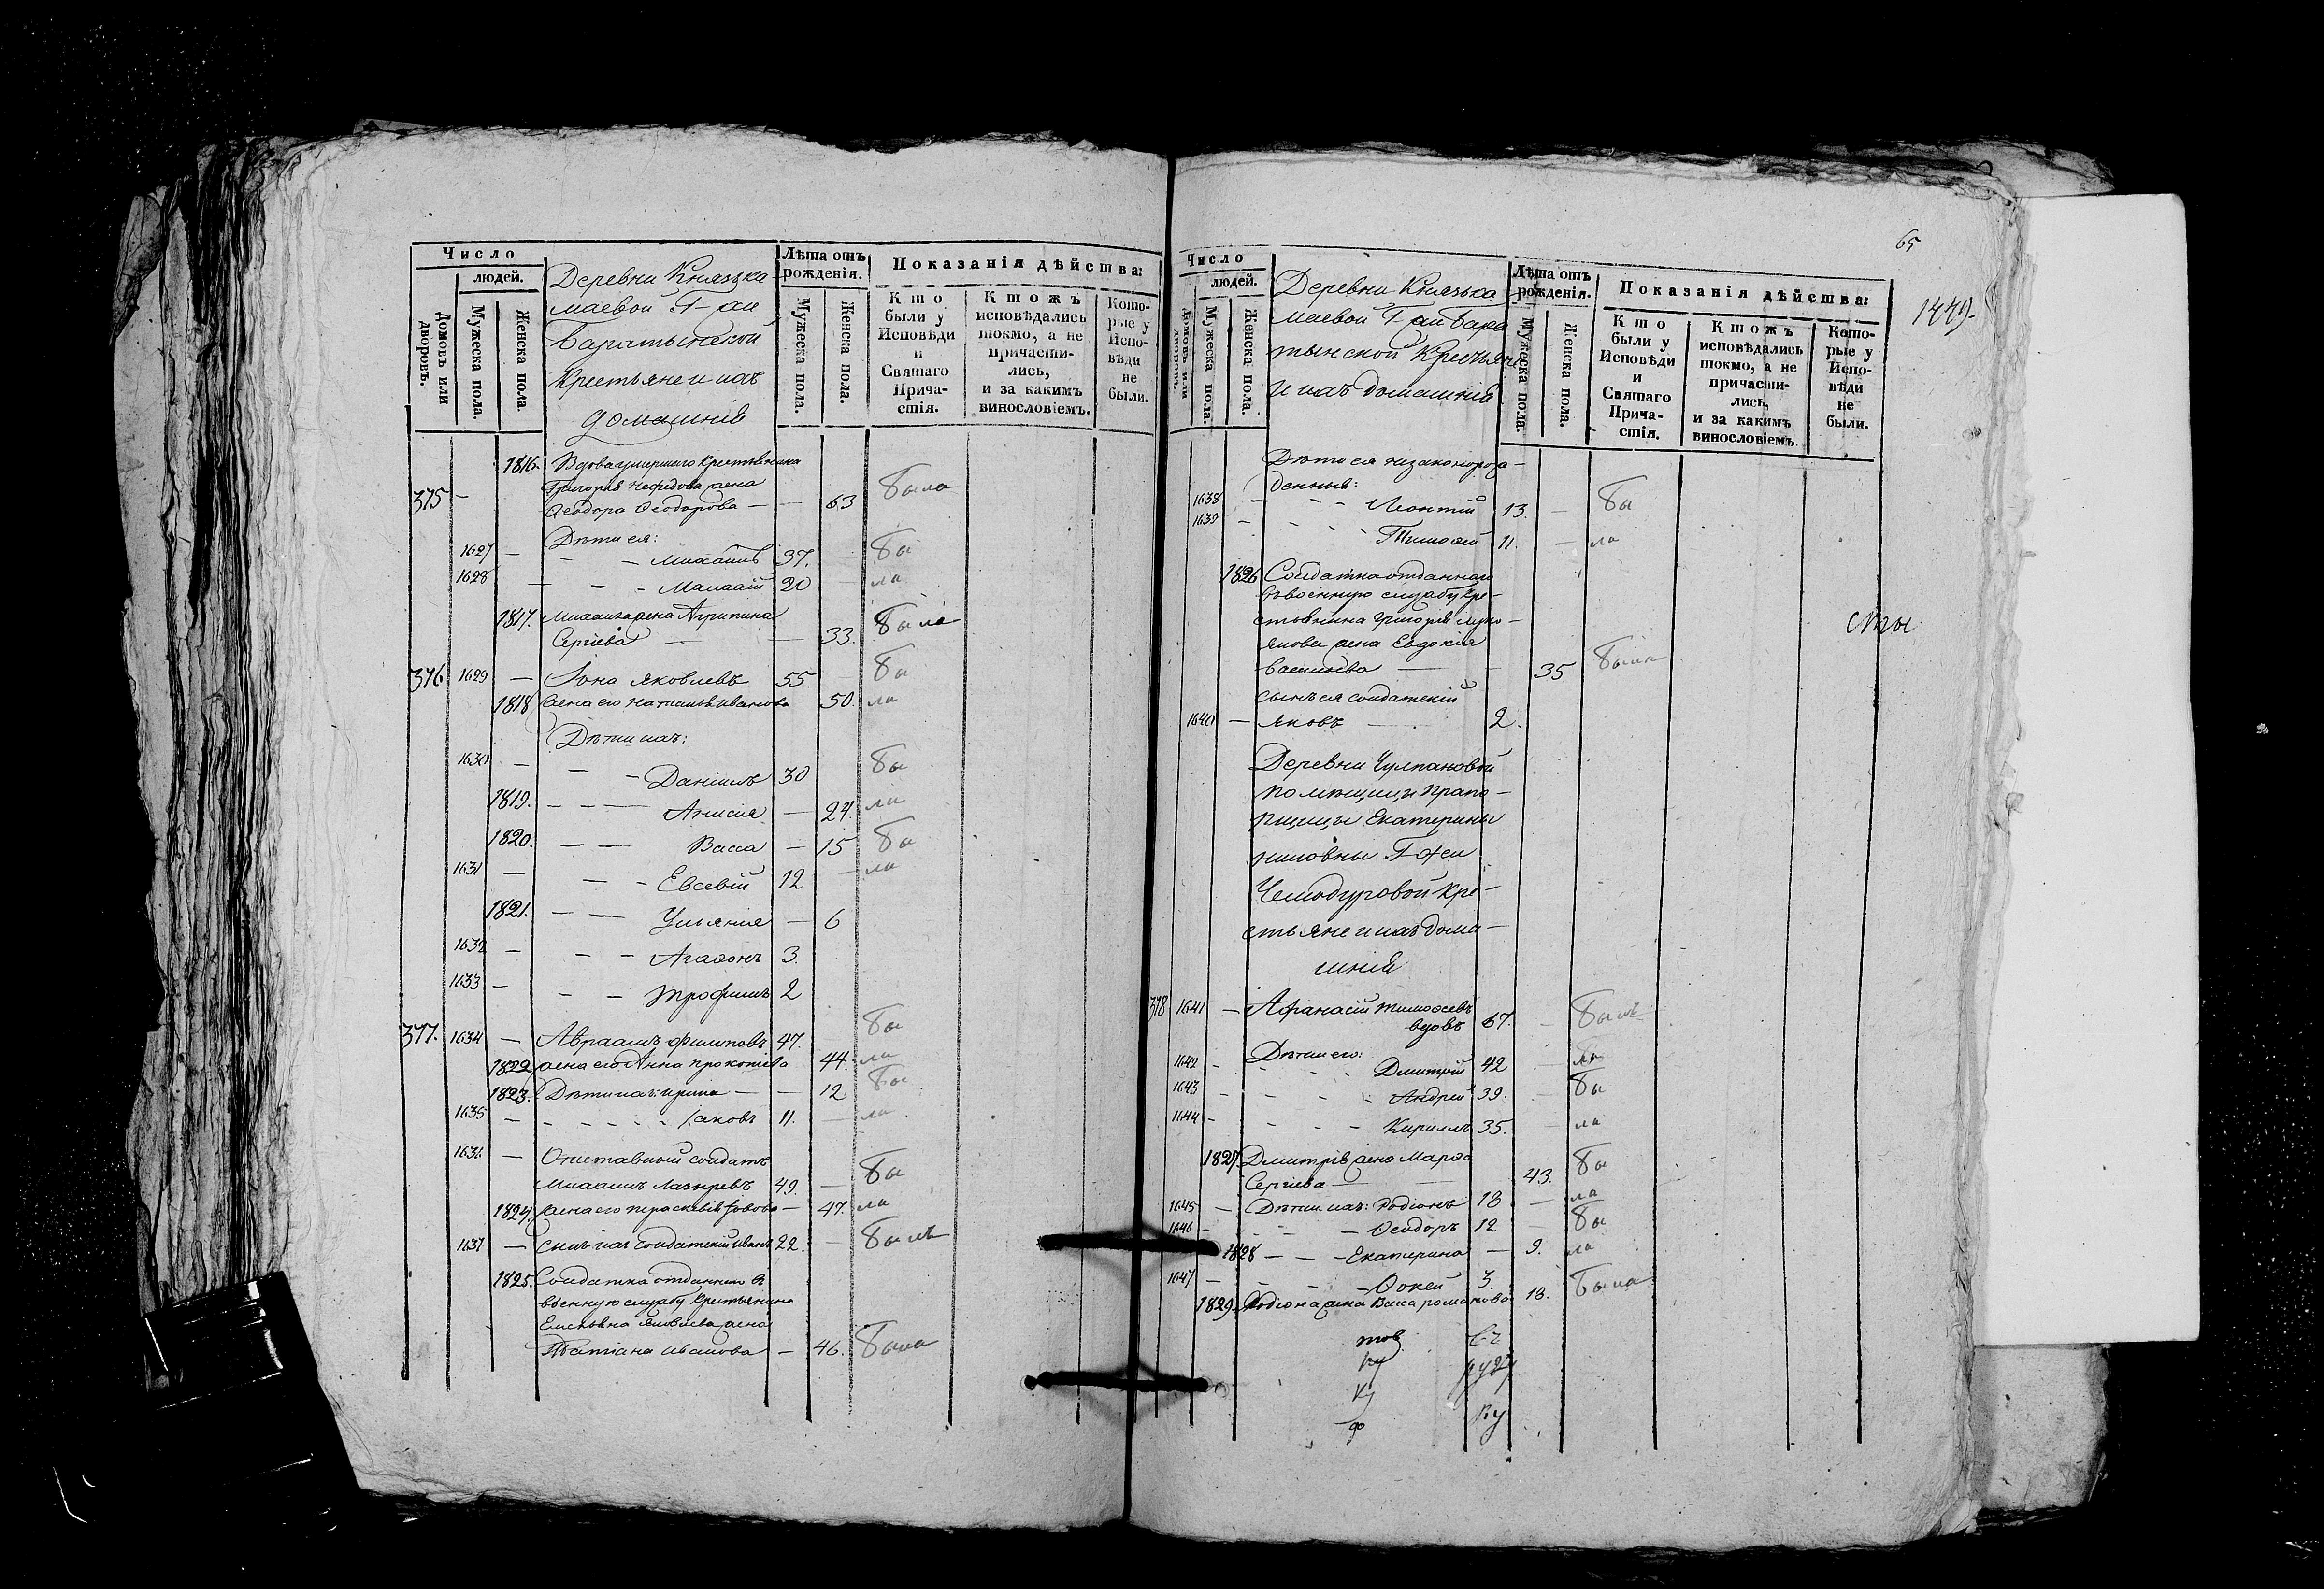 Число
людей.
Домовъ или дворовъ.
Мужеска пола.
Женска пола.
Деревни Князька
маевой Г-жи
Баратынской
Крестьяне и ихъ
домашнія
Лѣта отъ рожденія.
Мужеска пола.
Женска пола.
Показанія дѣйства:
Кто были у Исповѣди и Святаго Причастія.
Ктожъ исповѣдались токмо, а не причастились, и за какимъ винословіемъ.
Которые у Исповѣди не были.
1816. Вдова умершаго крестьянина
Григорія Нефедова жена
375 — Ѳеодора Ѳеодорова — — 63 была
Дѣти ея:
1627 — — — Михаилъ 37. — бы
1628 — — — Малахій 20 — ли
1817. Михаила жена Агрипина
Сергіева — — 33. была
376 1629 — Іона Яковлевъ 55. — бы
1818 жена его Наталья Иванова 50. ли
Дѣти ихъ:
1630 — — — Даніилъ 30 бы
1819. — — — Анисия — 24. ли
1820. — — Васса — 15 бы
1631 — — — Евсевій 12 — ли
1821. — — Ульянія — 6
1632 — — — Агаѳонъ 3.
1633 — — — Трофимъ 2
377. 1634 — Авраамъ Филиповъ 47. бы
1822 жена его Анна Прокопіева 44. ли
1823. Дѣти ихъ: Ирина — — 12 бы
1635 — — — — — Іаковъ 11. — ли
1636 — Отставный солдатъ
Михаилъ Лазаревъ 49. — бы
1824. жена его Параскевія — 47. ли
1637 — сынъ ихъ солдатскій Иванъ 22. — былъ
1825. Солдатка отданнаго въ
военную службу крестьянина
Емельяна Яковлева жена
Татіана Иванова — 46. была
65
1449
Число
людей.
Домовъ или дворовъ.
Мужеска пола.
Женска пола.
Деревни Князька
маевой Г-жи Бара
тынской Крестьяне
и ихъ домашнія
Лѣта отъ рожденія.
Мужеска пола.
Женска пола.
Показанія дѣйства:
Кто были у Исповѣди и Святаго Причастія.
Ктожъ исповѣдались токмо, а не причастились, и за какимъ винословіемъ.
Которые у Исповѣди не были.
Дѣти ея незаконорож-
денныя:
1638 — — — Леонтій 13. — бы
1639 — — — Тимоѳей 11. — ли
1826 Солдатка отданнаго
въ военную службу кре-
стьянина Григорія Луко-
янова жена Евдокия
Васильева — — 35 была
сынъ ея солдатскій
1640 — Яковъ — 2.
сты
Деревни Чулпановой
помѣщицы прапо-
рщицы Екатерины
Ниловны Г-жи
Чемодуровой кре-
стьяне и ихъ дома-
шнія
378 1641 — Афанасій Тимоѳеевъ
вдовъ 67. — былъ
Дѣти его:
1642 — — — Дмитрій 42 — ли
1643 — — — — Андрей 39. — бы
1644 — — — — Кириллъ 35. — ли
1827. Дмитрія жена Марѳа
Сергіева — — 43. бы
1645 — Дѣти ихъ: Родіонъ 18 — ли
1646 — — — Ѳеодоръ 12 — бы
1828 — — — Екатерина — 9. ли
1647 — — — Ѳокей 3.
1829. Родіона жена Васса Романова 18. была